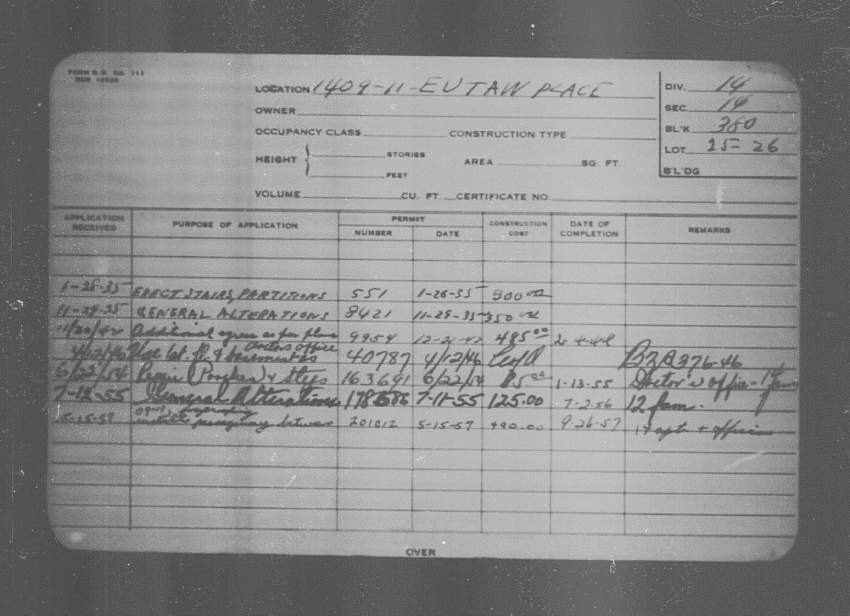 FORM B.U. No. 111
LOCATION 1409-11-EUTAW PLACE
DIV. 14
OWNER
SEC. 14
OCCUPANCY CLASS CONSTRUCTION TYPE
BL'K 380
HEIGHT STORIES AREA SQ. FT.
LOT 25-26
FEET
B'L'DG
VOLUME CU. FT. CERTIFICATE NO.
APPLICATION RECEIVED PURPOSE OF APPLICATION PERMIT NUMBER DATE CONSTRUCTION COST DATE OF COMPLETION REMARKS
1-28-35 ERECT STAIRS, PARTITIONS 551 1-28-35 300.00
11-29-35 GENERAL ALTERATIONS 8421 11-29-35 350.00
11/20/42 Additional egress as per plans 9954 12-21-42 485.00
Doctors office
4/12/46 Use 1st fl. & basement as 40787 4/12/46 BZA 376-46
6/22/54 Repair (Porches) & Steps 163691 6/22/54 85.00 1-13-55 Doctor's office-14 fam
7-12-55 General Alterations 178586 7-11-55 125.00 7-2-56 12 fam.
5-15-57 201012 5-15-57 490.00 9-26-57 apts + offices
OVER